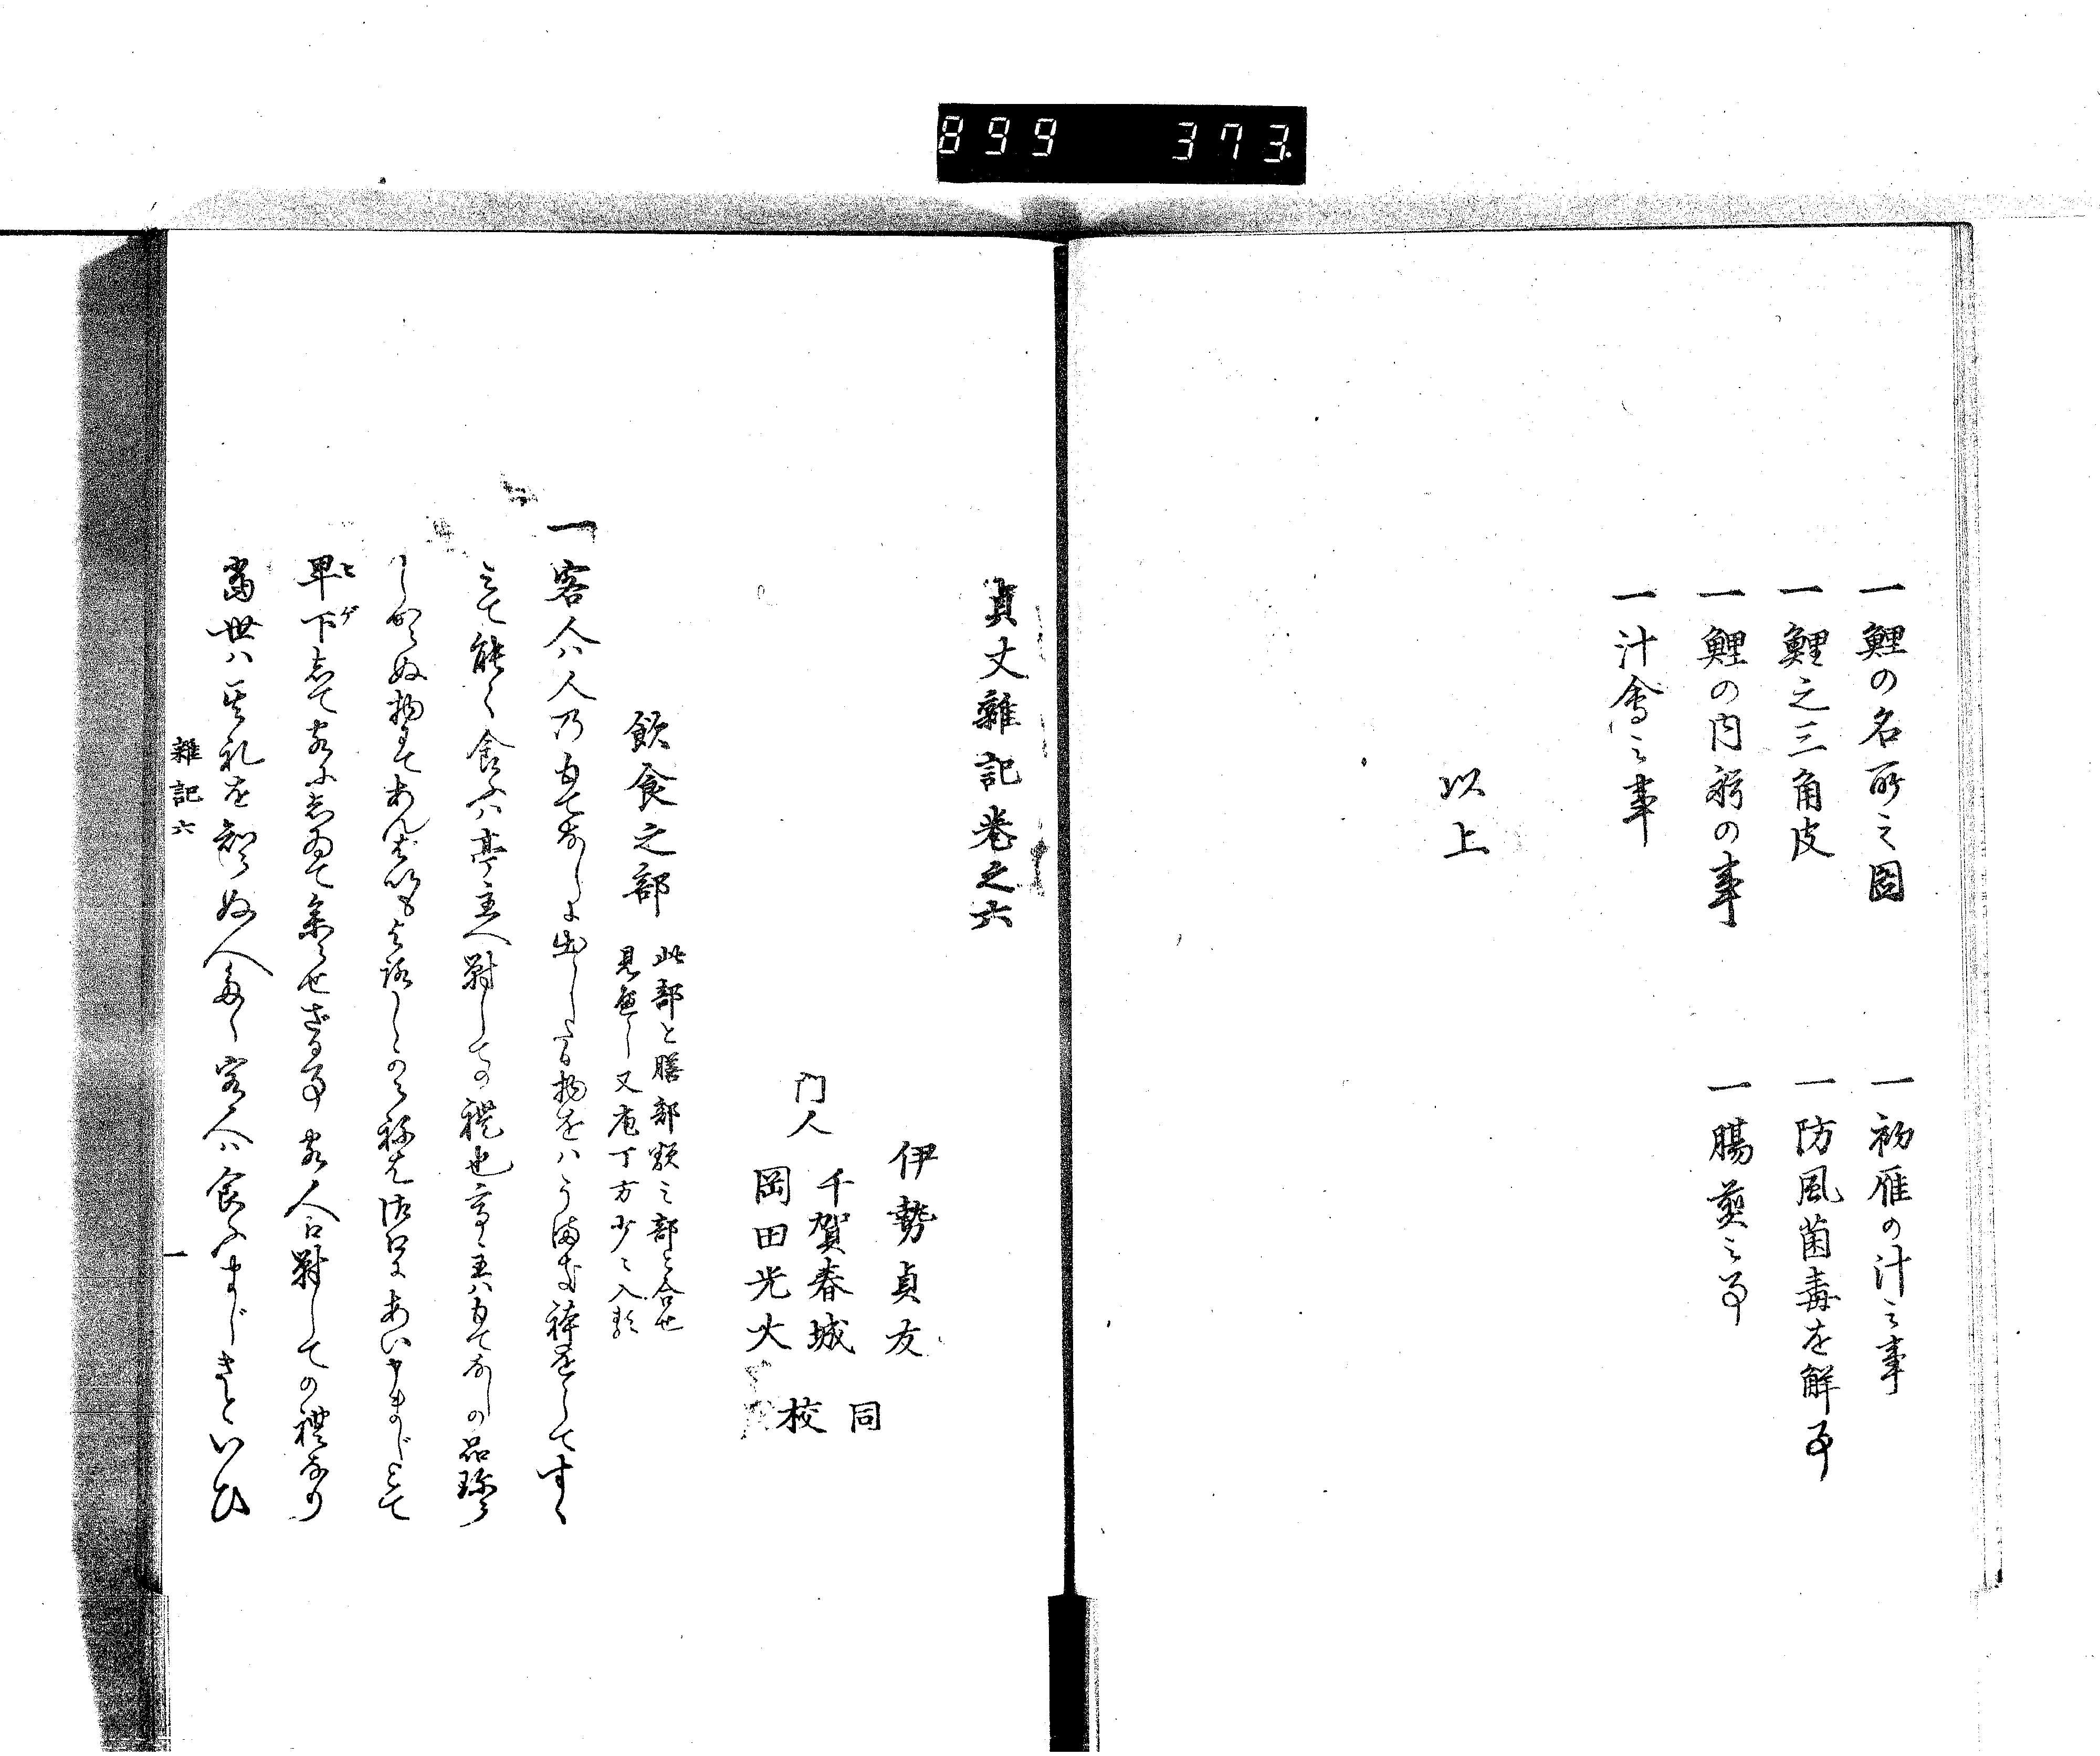 899 373
一鯉の名所之図
一初雁の汁之事
一鯉之三角皮
一防風菌毒を解事
一鯉の内卵の事
一腸煎之事
一汁會之事
以上
貞丈雜記巻之六
伊勢貞友
門人 千賀春城 同
岡田光大 校
飲食之部
此部と膳部類之部と合せ
見る
し又庖丁方少々入
一客人ハ人乃もてなしに出したる物をハうまき
をしてすゝ
みて能く食ふハ亭主へ對しての禮也亭主ハもてなしの品珍ら
しからぬ物にてあんばいもよろしからねば
御口にあい申まじとて
卑下して客にしゐて参らせざる事客人に對しての禮なり
ヒゲ
當世ハ其礼を知らぬ人多く客人ハ食ふまじきといひ
雜記六
一